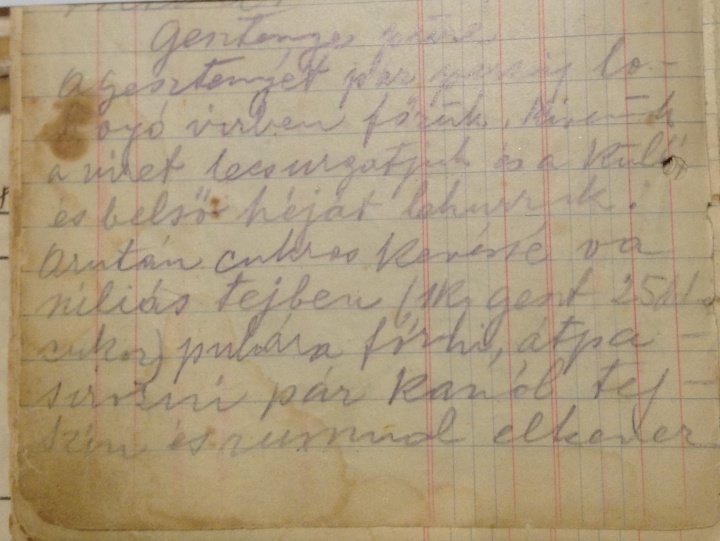 Gesztenye püré
A gesztenyét pár percig lo-
bogó vízben főzük, kivesszük
a vizet lecsurgatjuk és a külső
és belső héját lehuzzuk.
Azután cukros kevéssé va
níliás tejben (1 kg geszt 25 dk
cukor) puhára főzni, átpa-
sirozni pár kanól tej-
szín és rummal elkever